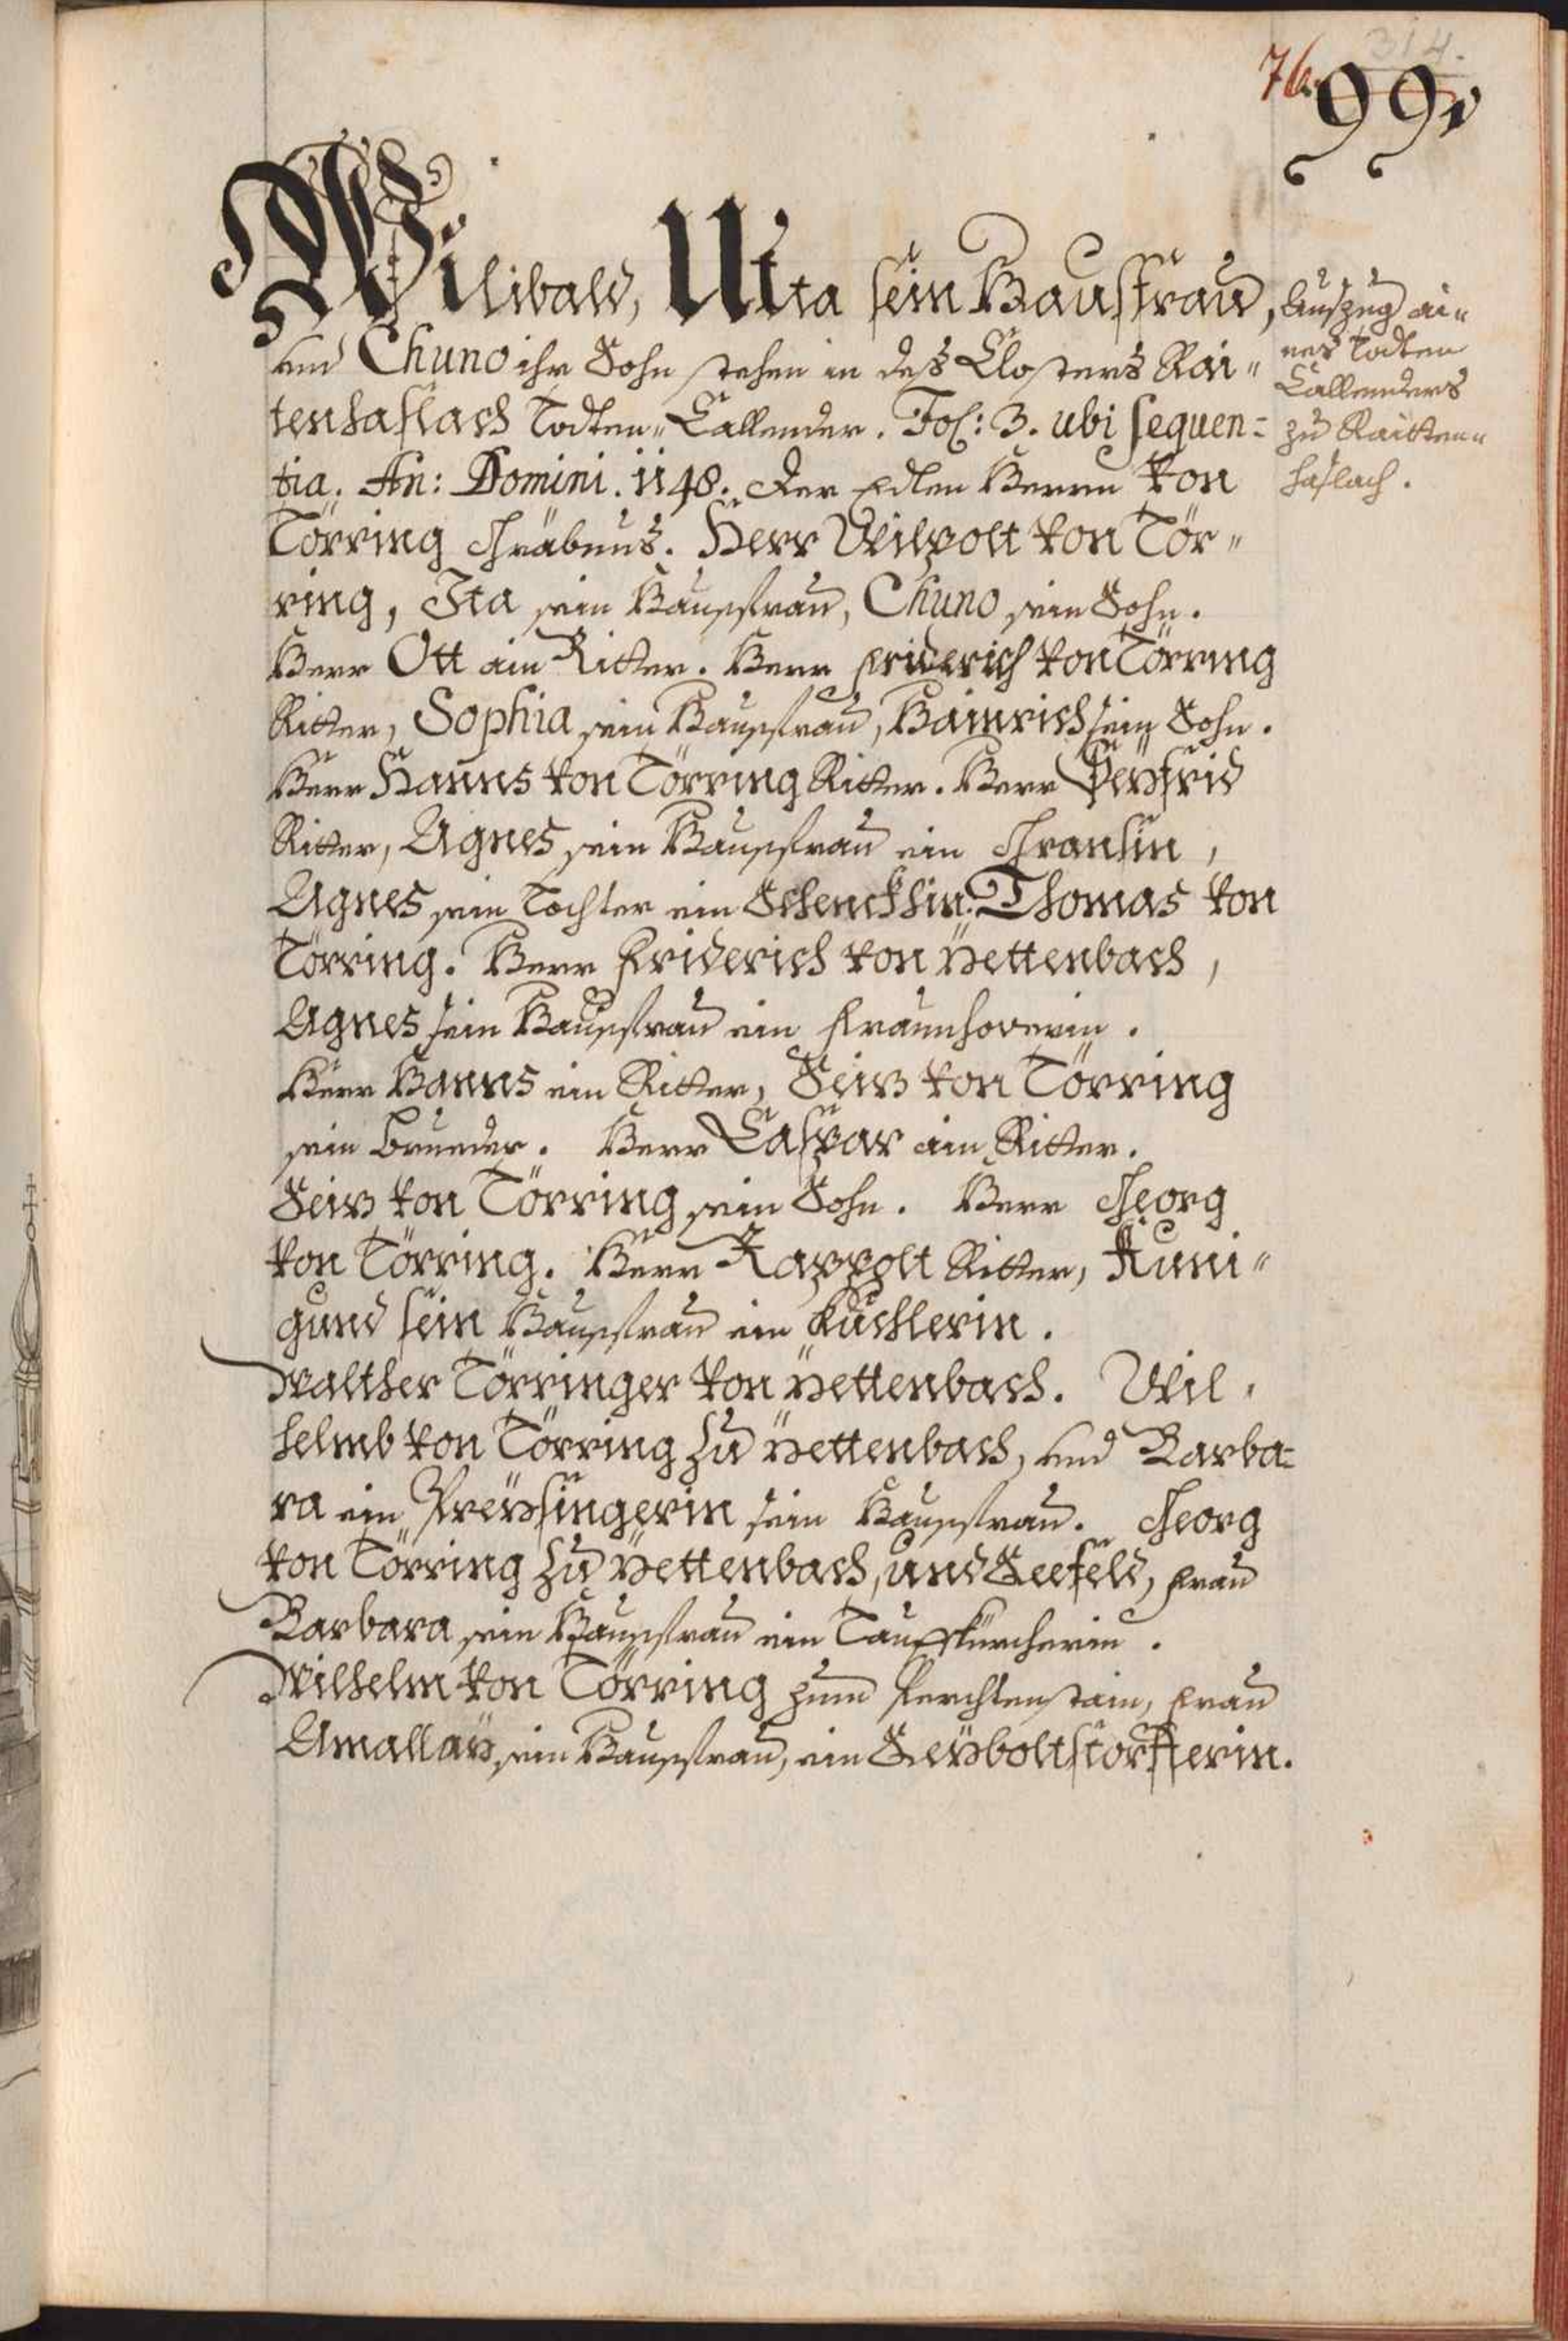 314.
76.
99.
Wilibald, Utta sein Hausfrau,
und Chuno ihr Sohn stehen in deß Closters Rai„
tenhaslach Todten„Callender. Fol: 3. ubi sequen=
tia. An: Domini. 1148. Der Edlen Herrn von
Törring Gräbnus. Herr Wilpolt von Tör„
ring, Ita sein Haussfrau, Chuno sein Sohn.
Herr Ott ain Ritter. Herr Friderich von Törring
Ritter, Sophia sein Haussfrau, Hainrich sein Sohn.
Herr Hanns von Törring Ritter. Herr Seyfrid
Ritter, Agnes sein Haussfrau ein Gransin,
Agnes sein Tochter ein Schenckhin. Thomas von
Törring. Herr Friderich von Yettenbach,
Agnes sein Haussfrau ein Fraunhoverin.
Herr Hanns ein Ritter, Seiz von Törring
sein Brueder. Herr Caspar ain Ritter.
Seiz von Törring sein Sohn. Herr Georg
von Törring. Herr Rappolt Ritter, Kuni„
gund sein Haussfrau ein Kuchlerin.
Walther Törringer von Yettenbach. Wil„
helmb von Törring zu Yettenbach, und Barba=
ra ein Preysingerin sein Haussfrau. Georg
von Törring zu Yettenbach, und Seefeld, Frau
Barbara sein Haussfrau ein Taufkürcherin.
Wilhelm von Törring zum Perchtenstain, Frau
Amallay, sein Haussfrau, ein Seyboltstorfferin.
Auszug ai„
nes Todten
Callenders
zu Raitten„
haslach.